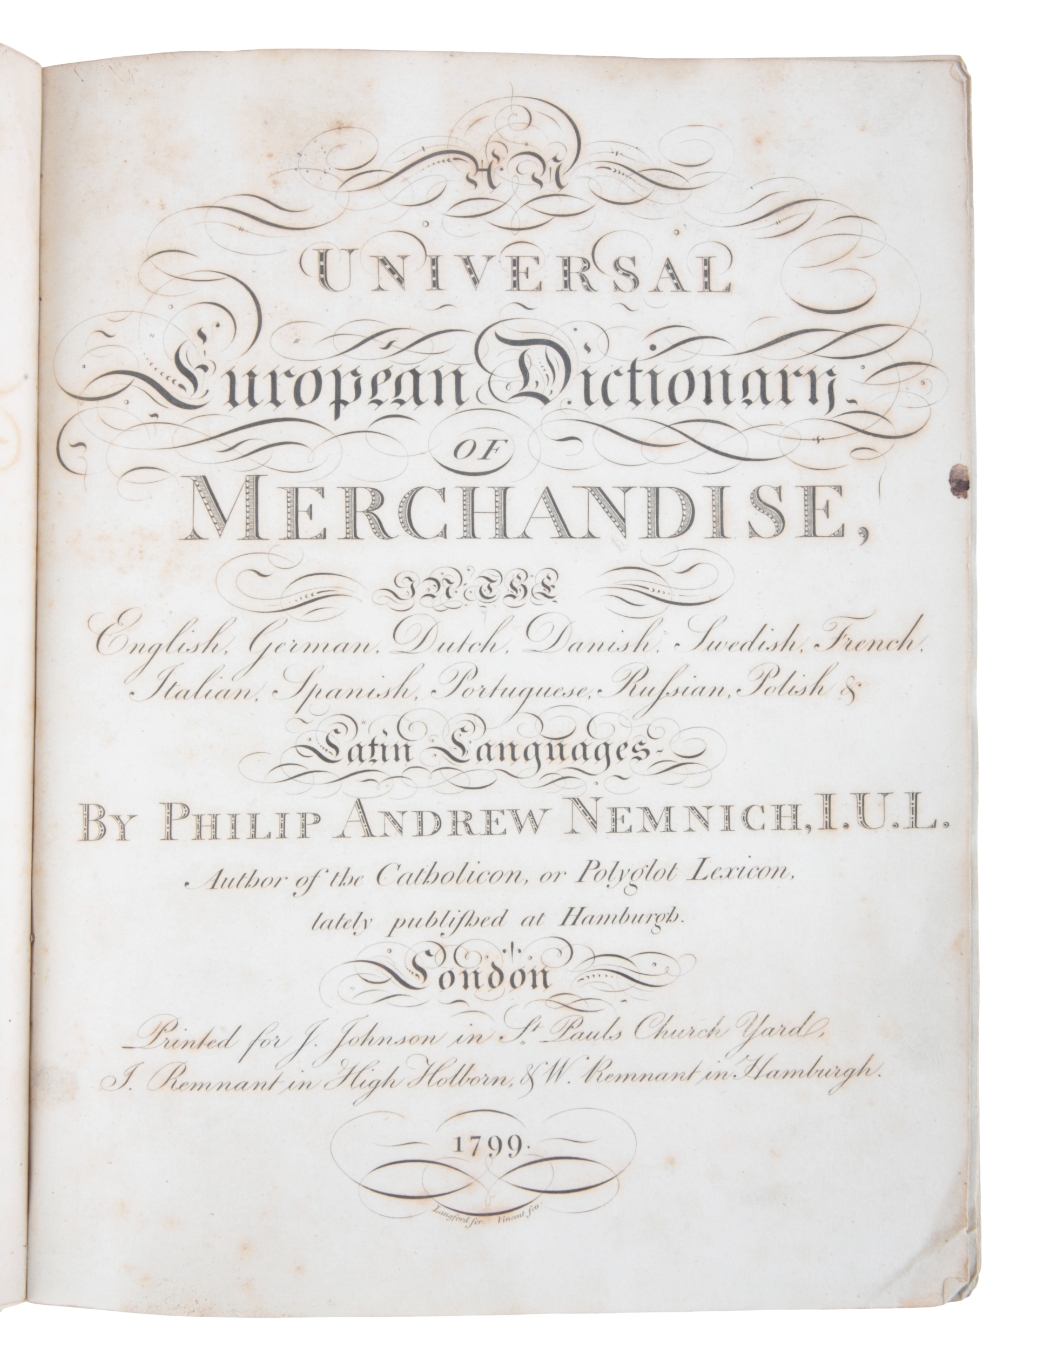 AN
UNIVERSAL
European Dictionary.
OF
MERCHANDISE,
IN THE
English, German, Dutch, Danish, Swedish, French,
Italian, Spanish, Portuguese, Ruſsian, Polish &
Latin Languages.
BY PHILIP ANDREW NEMNICH, I.U.L.
Author of the Catholicon, or Polyglot Lexicon,
lately publiſhed at Hamburgh.
London
Printed for J. Johnson in St. Pauls Church Yard,
J. Remnant in High Holborn, & W. Remnant in Hamburgh.
1799.
Langford scr. Vincent scu